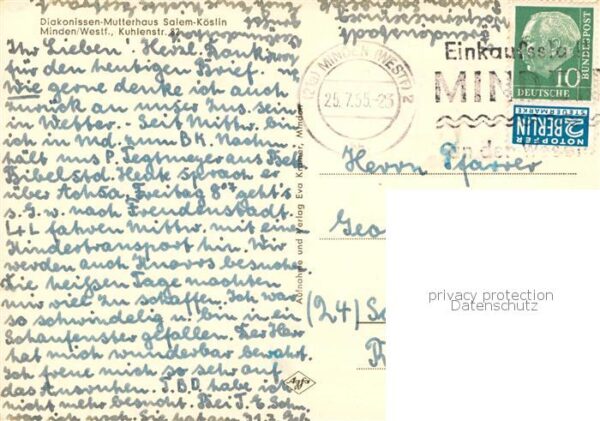 Diakonissen-Mutterhaus Salem-Köslin
Minden/Westf., Kuhlenstr. 82
Ihr Lieben! Herzl. Dank
für den heutigen Brief.
Wie gerne denke ich auch
zurück an unser Zus.sein
in Wetter. Seit Mittw. bin
ich in Md. zum BK. Nachm.
hält uns P. Segtmeyer aus
Bibelstd. Heute sprach er
über Freitag 8⁰⁷ geht's
s. G. w. nach Freudenstadt.
L+L fahren Mittw. mit einem
Kindertransport hin. Wir
werden auch Knorrs besuchen
die heißen Tage machten
mir viel zu schaffen. Ich war
so schwindelig u. bin in ein
Schaufenster gefallen. Der Herr
hat mich wunderbar bewahrt.
Ich freue mich so sehr auf
das Ausruhen. J.B.D. habe ich
nicht mehr besucht. Bei T. E. Sohn
war ich noch. Sie hat am 31.7. Geb
Aufnahme und Verlag Eva Minden
Agfa
(21a) MINDEN (WESTF) 2
25.7.55.-23
Einkaufsstadt
MIN
an der Weser
DEUTSCHE
BUNDESPOST
10
NOTOPFER
2 BERLIN
STEUERMARKE
Herrn Pfarrer
Geo
(24)
privacy protection
Datenschutz